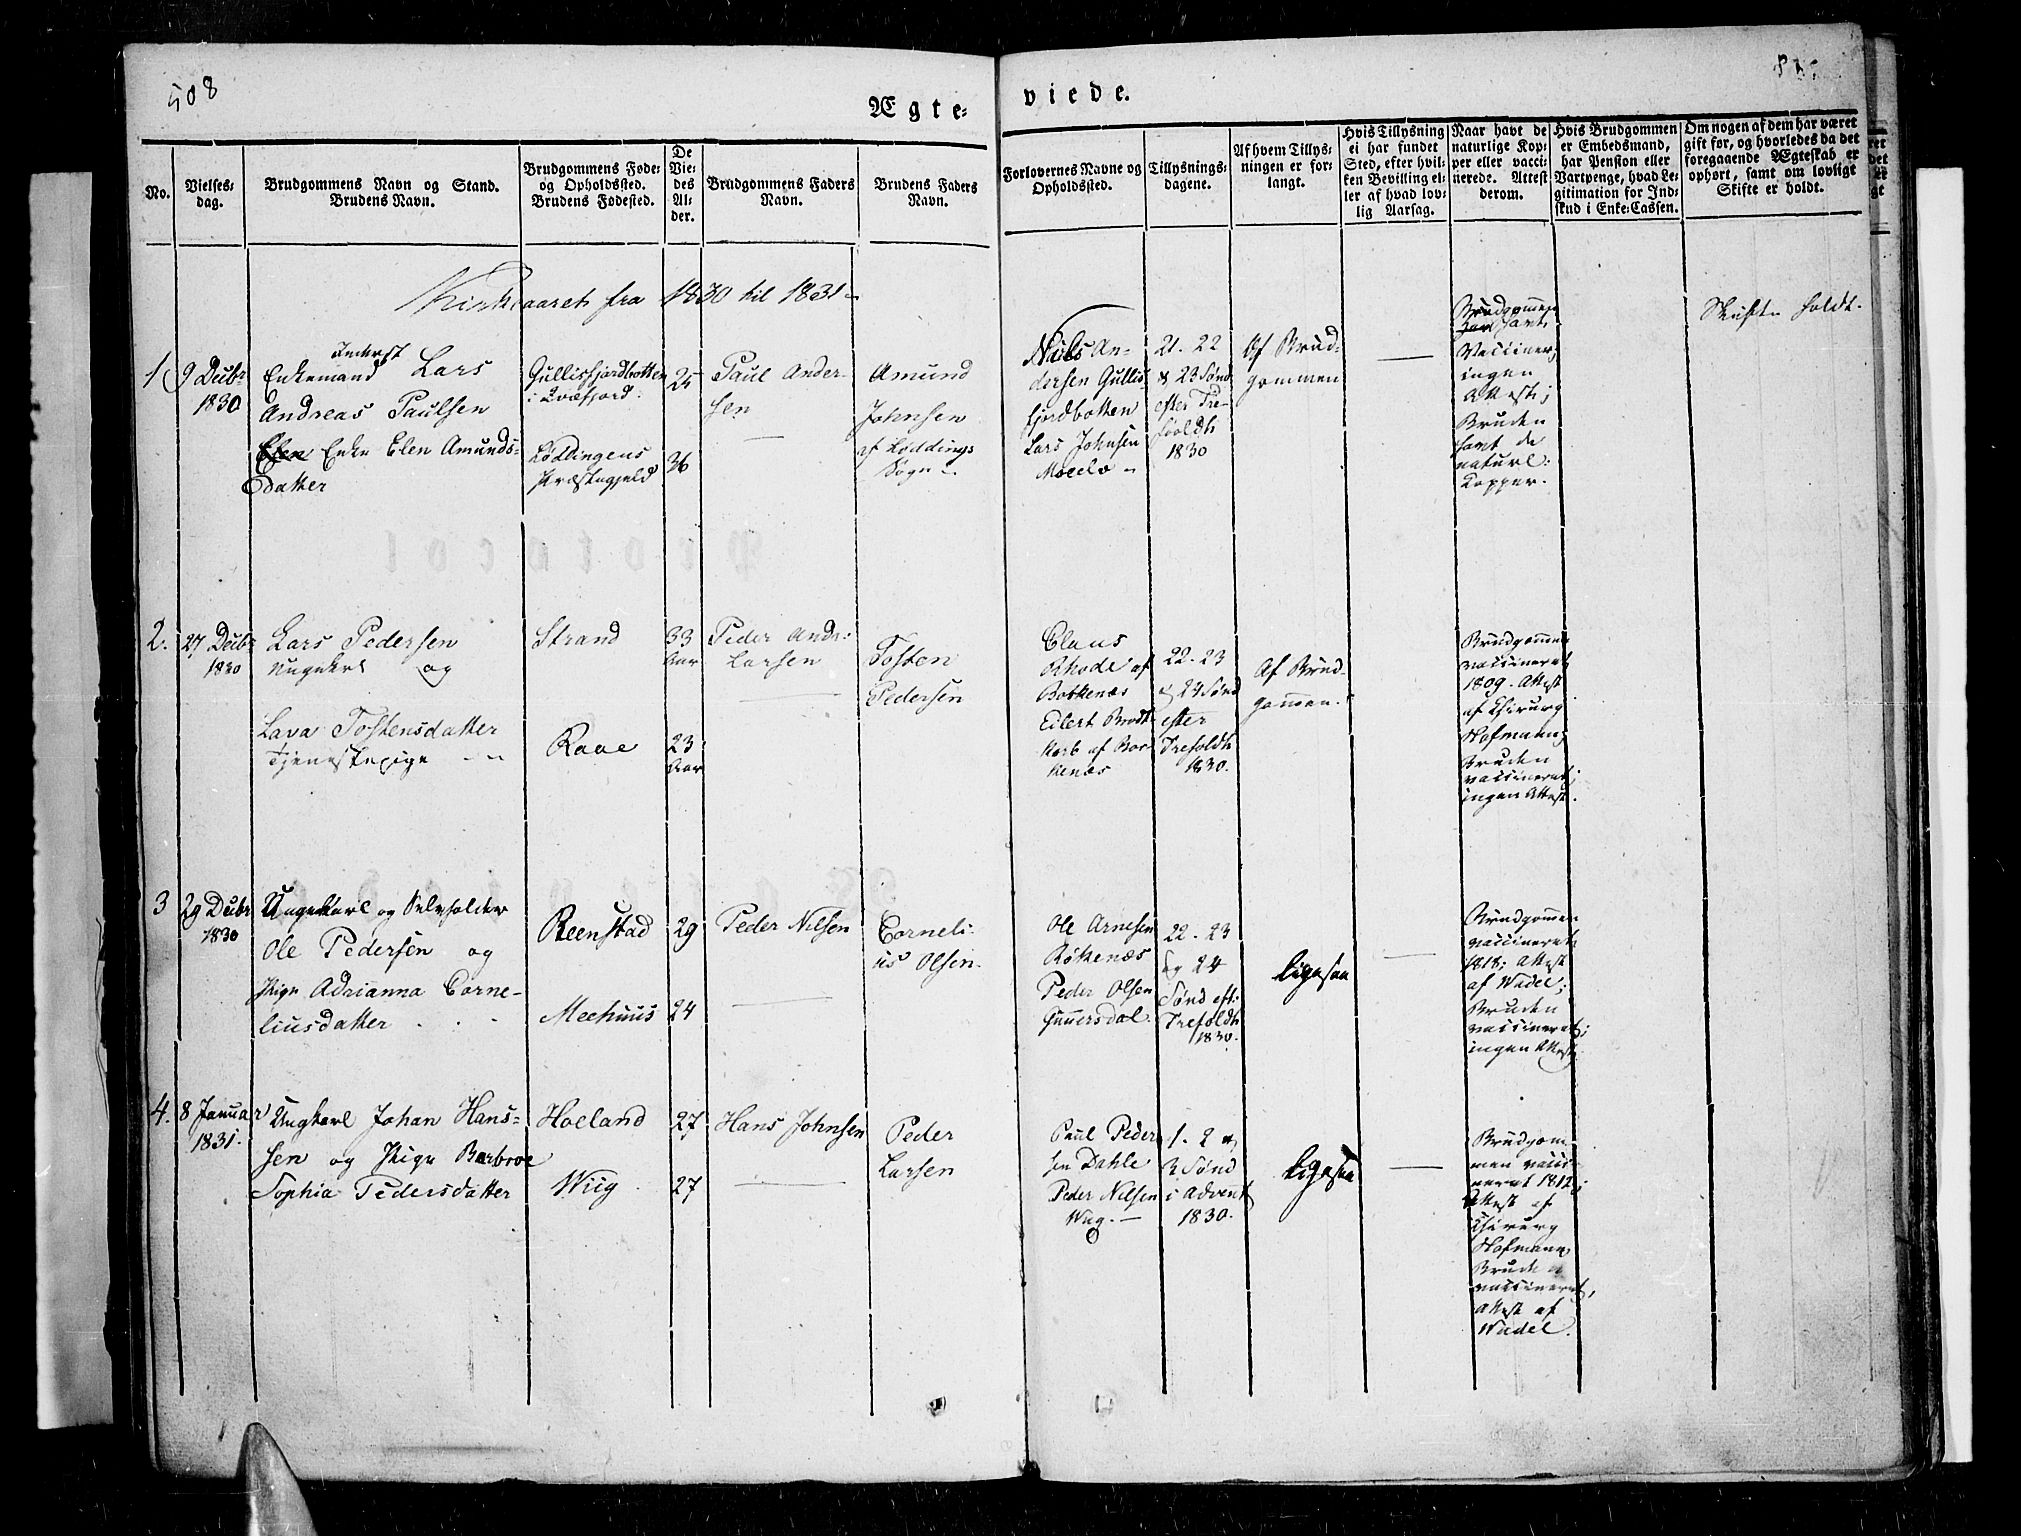 508
Ægte-
viede.
No.
Vielses-
dag.
Brudgommens Navn og Stand.
Brudens Navn.
Brudgommens Føde-
og Opholdssted.
Brudens Fødested.
De
Vie-
des
Al-
der.
Brudgommens Faders
Navn.
Brudens Faders
Navn.
Forlovernes Navne og
Opholdssted.
Tillysnings-
dagene.
Af hvem Tillys-
ningen er for-
langt.
Hvis Tillysning
ei har fundet
Sted, efter hvil-
ken Bevilling el-
ler af hvad lov-
lig Aarsag.
Naar havt de
naturlige Kop-
per eller vacci-
nerede. Attest
derom.
Hvis Brudgommen
er Embedsmand,
har Pension eller
Vartpenge, hvad Le-
gitimation for Ind-
skud i Enke-Cassen.
Om nogen af dem har været
gift før, og hvorledes da det
foregaaende Ægteskab er
ophørt, samt om lovligt
Skifte er holdt.
Kirkeaaret fra 1830 til 1831
1
9 Decbr
1830
Inderst
Enkemand Lars
Andreas Paulsen
Enke Elen Amunds-
datter
Gullisfjordbotten
i Qvæfjord.
Lødingens
Præstegjeld
25
36
Paul Ander-
sen
Amund
Johnsen
af Løddings
Sogn
Niels An-
dersen Gullis
fjordbotten
Lars Johnsen
21. 22
& 23 Sønd
efter Tre-
foldh
1830
Af Brud-
gommen
Brudgommen
Vacciner;
ingen
Attest;
Bruden
havt de
naturl:
Kopper.
Skifte holdt.
2.
27 Decbr
1830
Lars Pedersen
Ungkarl og
Lava Tostensdatter
Tjenestepige
Strand
Raae
33
Aar
23
Aar
Peder Andr:
Larsen
Tosten
Pedersen
Claus
Rhode af
Botkenæs
Eilert Brodt-
korb af Bor-
kenæs
22. 23
& 24 Sønd
efter
Trefoldh
1830.
Af Brud-
gommen.
Brudgommen
vaccineret
1809. Attest
af Chirurg
Hofmann;
Bruden
vaccineret;
ingen Attest.
3
29 Decbr
1830
Ungekarl og Selvholder
Ole Pedersen og
Pige Adrianna Corne-
liusdatter
Reenstad
Meehuus
29
24
Peder Nilsen
Corneli-
us Olsen
Ole Arnesen
Røkenæs
Peder Olsen
Gunnersdal
22. 23
og 24
Sønd eft:
Trefoldh
1830.
ligesaa
Brudgommen
vaccineret
1818; Attest
af Wadel;
Bruden
vaccineret;
ingen Attest
4.
8 Januar
1831.
Ungkarl Johan Hans-
sen og Pige Barbroe
Sophia Pedersdatter
Hoeland
Wiig
27
27
Hans Johnsen
Peder
Larsen
Paul Peder
sen Dahle
Peder Nilsen
Wiig.
1. 2 og
3 Sønd
i Advent
1830.
ligesaa
Brudgom-
men vacci-
neret 1812;
Attest af
Chirurg
Hofmann
Brude
vaccineret,
Attest af
Wadel.